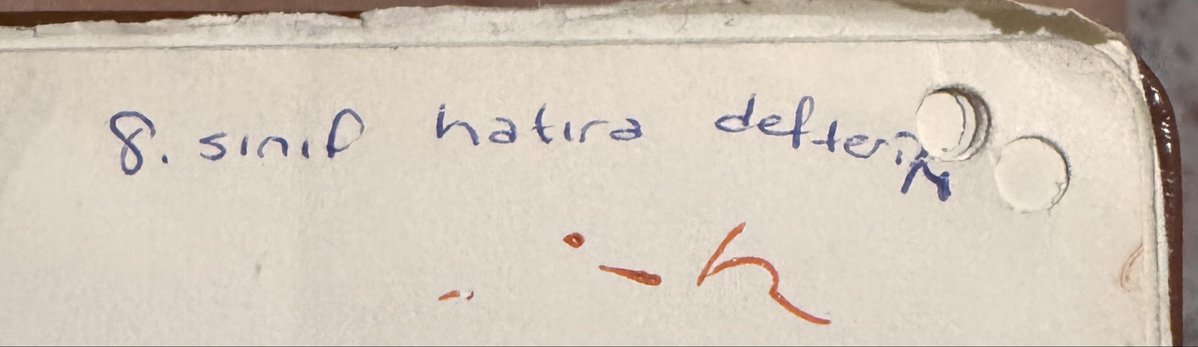 8. sınıf hatıra defterim